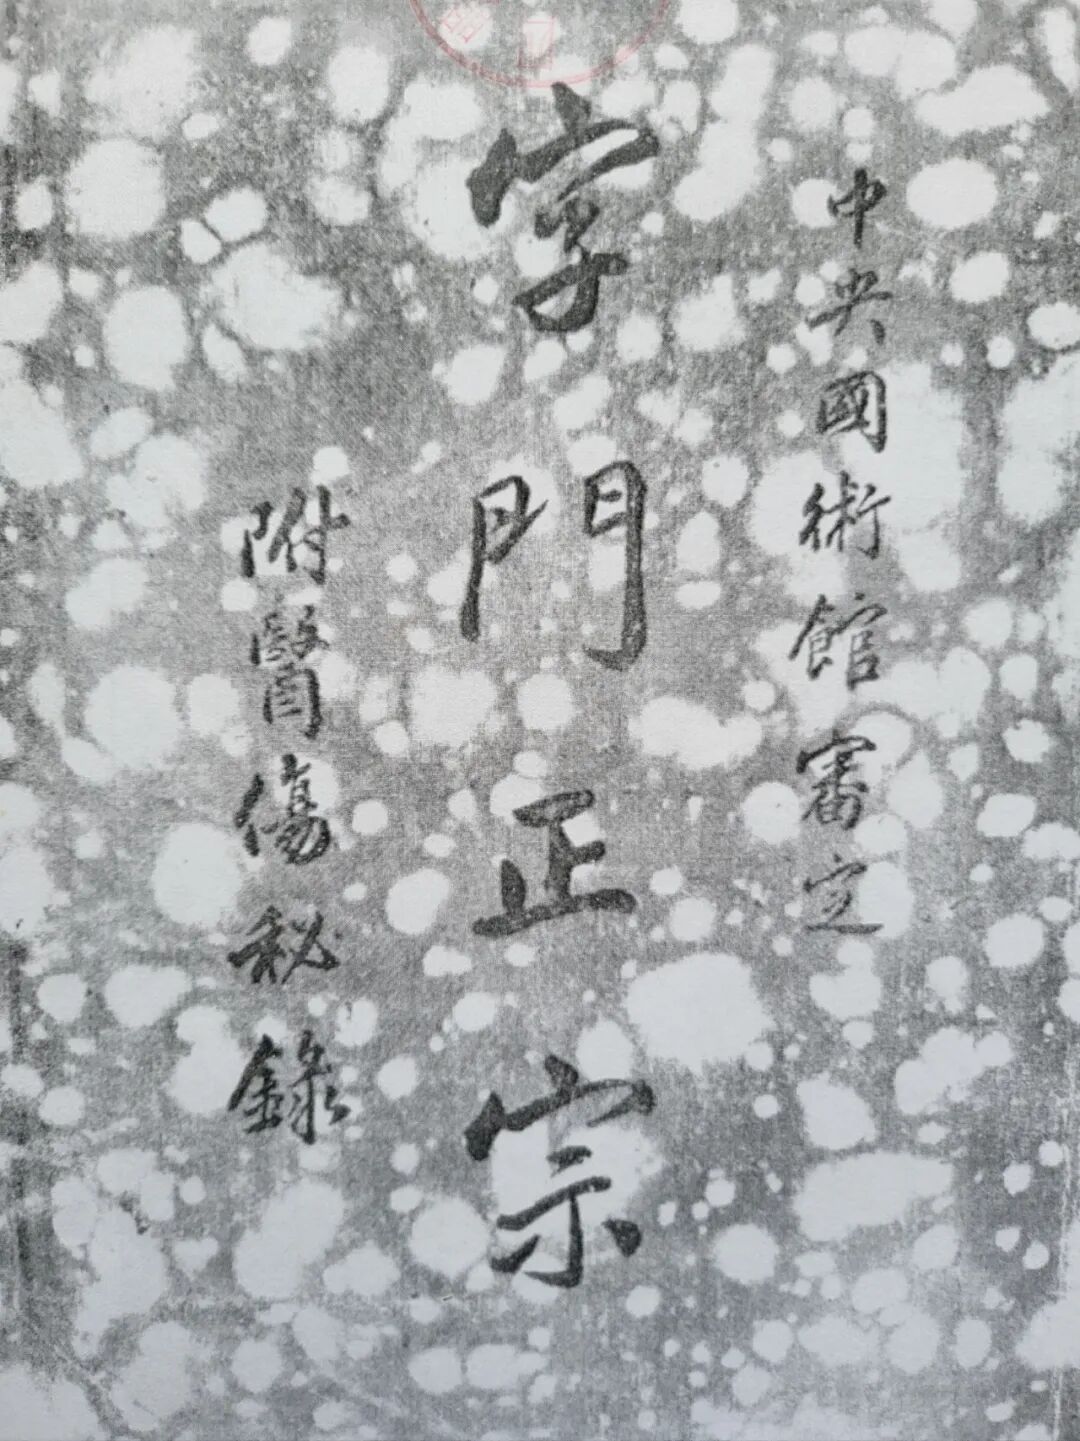 中央國術館審定
字門正宗
附醫傷秘錄